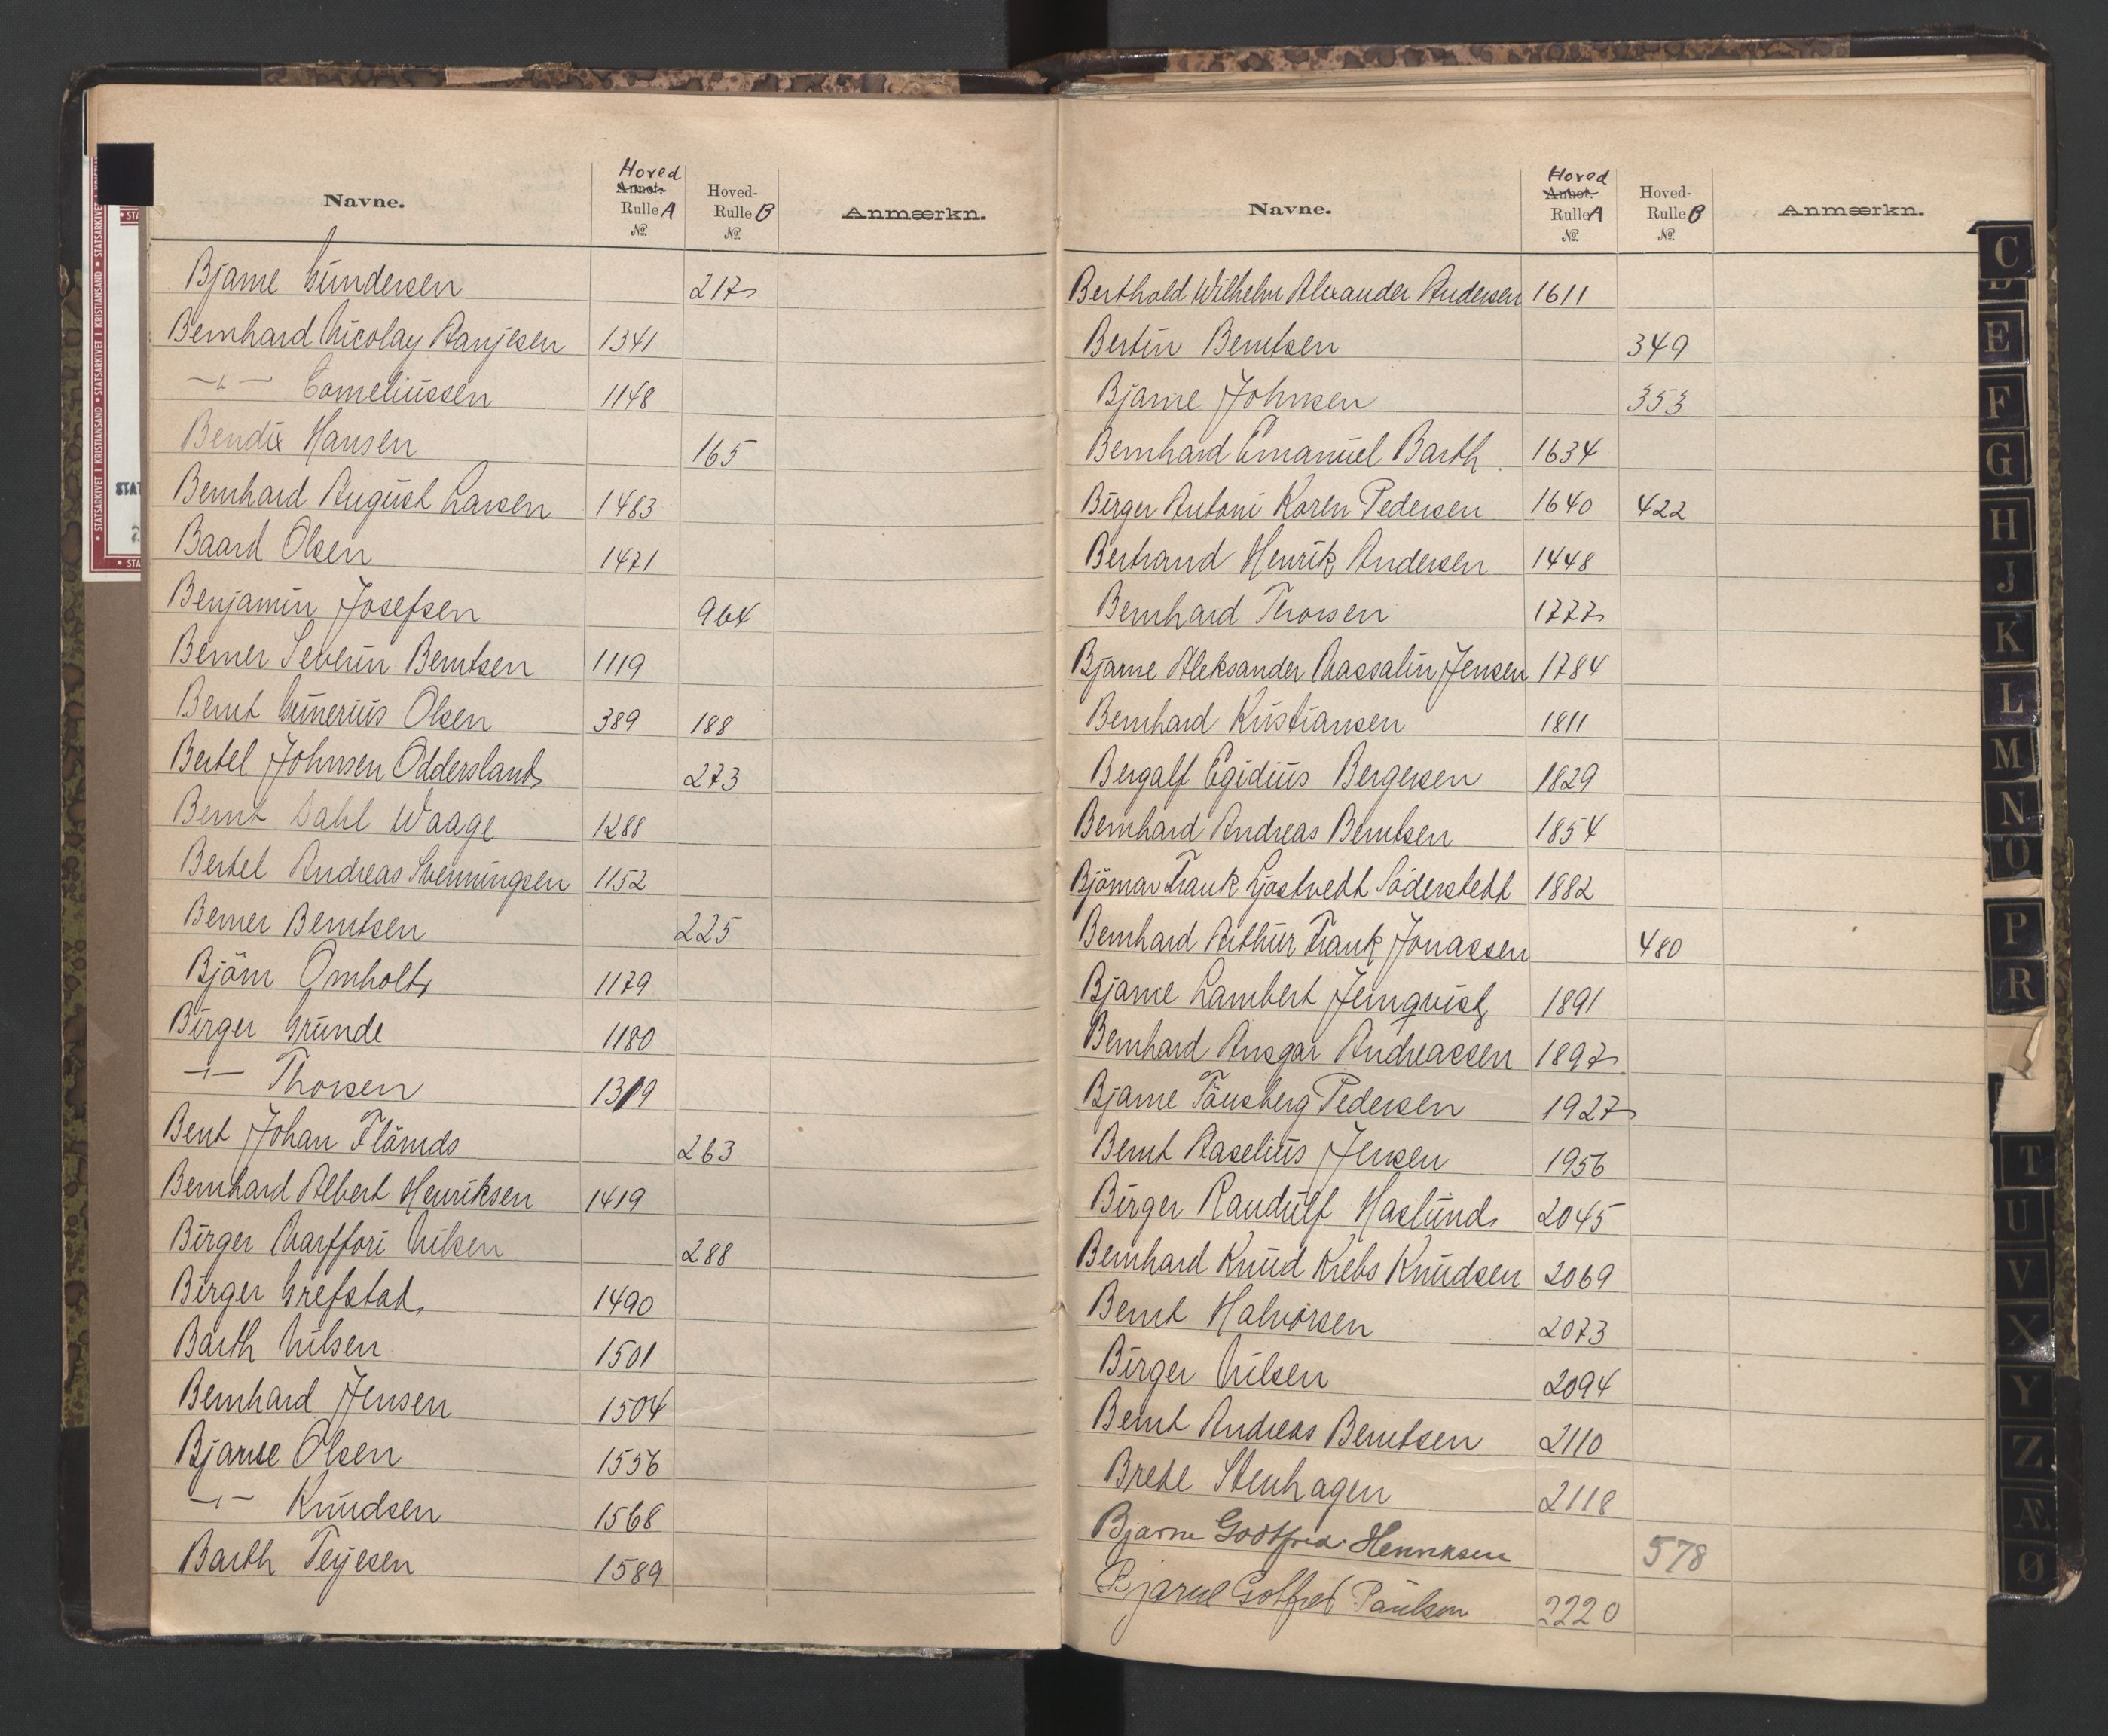 Hoved
Navne. Annot. Rulle A No. Hoved-Rulle B No. Anmærkn.
Bjarne Gundersen 217
Bernhard Nicolay Aanjesen 1341
—"— Corneliussen 1148
Bendix Hansen 165
Bernhard August Larsen 1483
Baard Olsen 1471
Benjamin Josefsen 964
Berner Severin Berntsen 1119
Bernt Gunerius Olsen 389 188
Bertel Johnsen Oddersland 273
Bernt Dahl Waage 1288
Bertel Andreas Svenningsen 1152
Berner Berntsen 225
Björn Omholt 1179
Birger Grunde 1180
—"— Thorsen 1319
Bent Johan 263
Bernhard Albert Henriksen 1419
Birger Nilsen 288
Birger Grefstad 1490
Barth Nilsen 1501
Bernhard Jensen 1504
Bjarne Olsen 1556
—"— Knudsen 1568
Barth Terjesen 1589
Hoved
Navne. Annot. Rulle A No. Hoved-Rulle B No. Anmærkn.
Berthold Wilhelm Alexander Andersen 1611
Bertin Berntsen 349
Bjarne Johnsen 353
Bernhard Emanuel Barth 1634
Birger Antoni Koren Pedersen 1640 422
Bertrand Henrik Andersen 1448
Bernhard Thorsen 1777
Bjarne Aleksander Nassalin Jensen 1784
Bernhard Kristiansen 1811
Bergalf Egidius Bergersen 1829
Bernhard Andreas Berntsen 1854
Björnar Frank Ljostvedt Söderstedt 1882
Bernhard Arthur Frank Jonassen 480
Bjarne Lambert Jernqvist 1891
Bernhard Ansgar Andreassen 1897
Bjarne Tönsberg Pedersen 1927
Bernt Aaselius Jensen 1956
Birger Randulf Haslund 2045
Bernhard Knud Krebs Knudsen 2069
Bernt Halvorsen 2073
Birger Nilsen 2094
Bernt Andreas Berntsen 2110
Brede Stenhagen 2118
Bjarne Godtfred Henriksen 578
Bjarne Gotfred Paulsen 2220
C
E
F
G
H
J
K
L
M
N
O
P
R
T
U
V
X
Y
Z
Æ
Ø
• STATSARKIVET I KRISTIANSAND • STATSARKIVET I KRISTIANSAND •